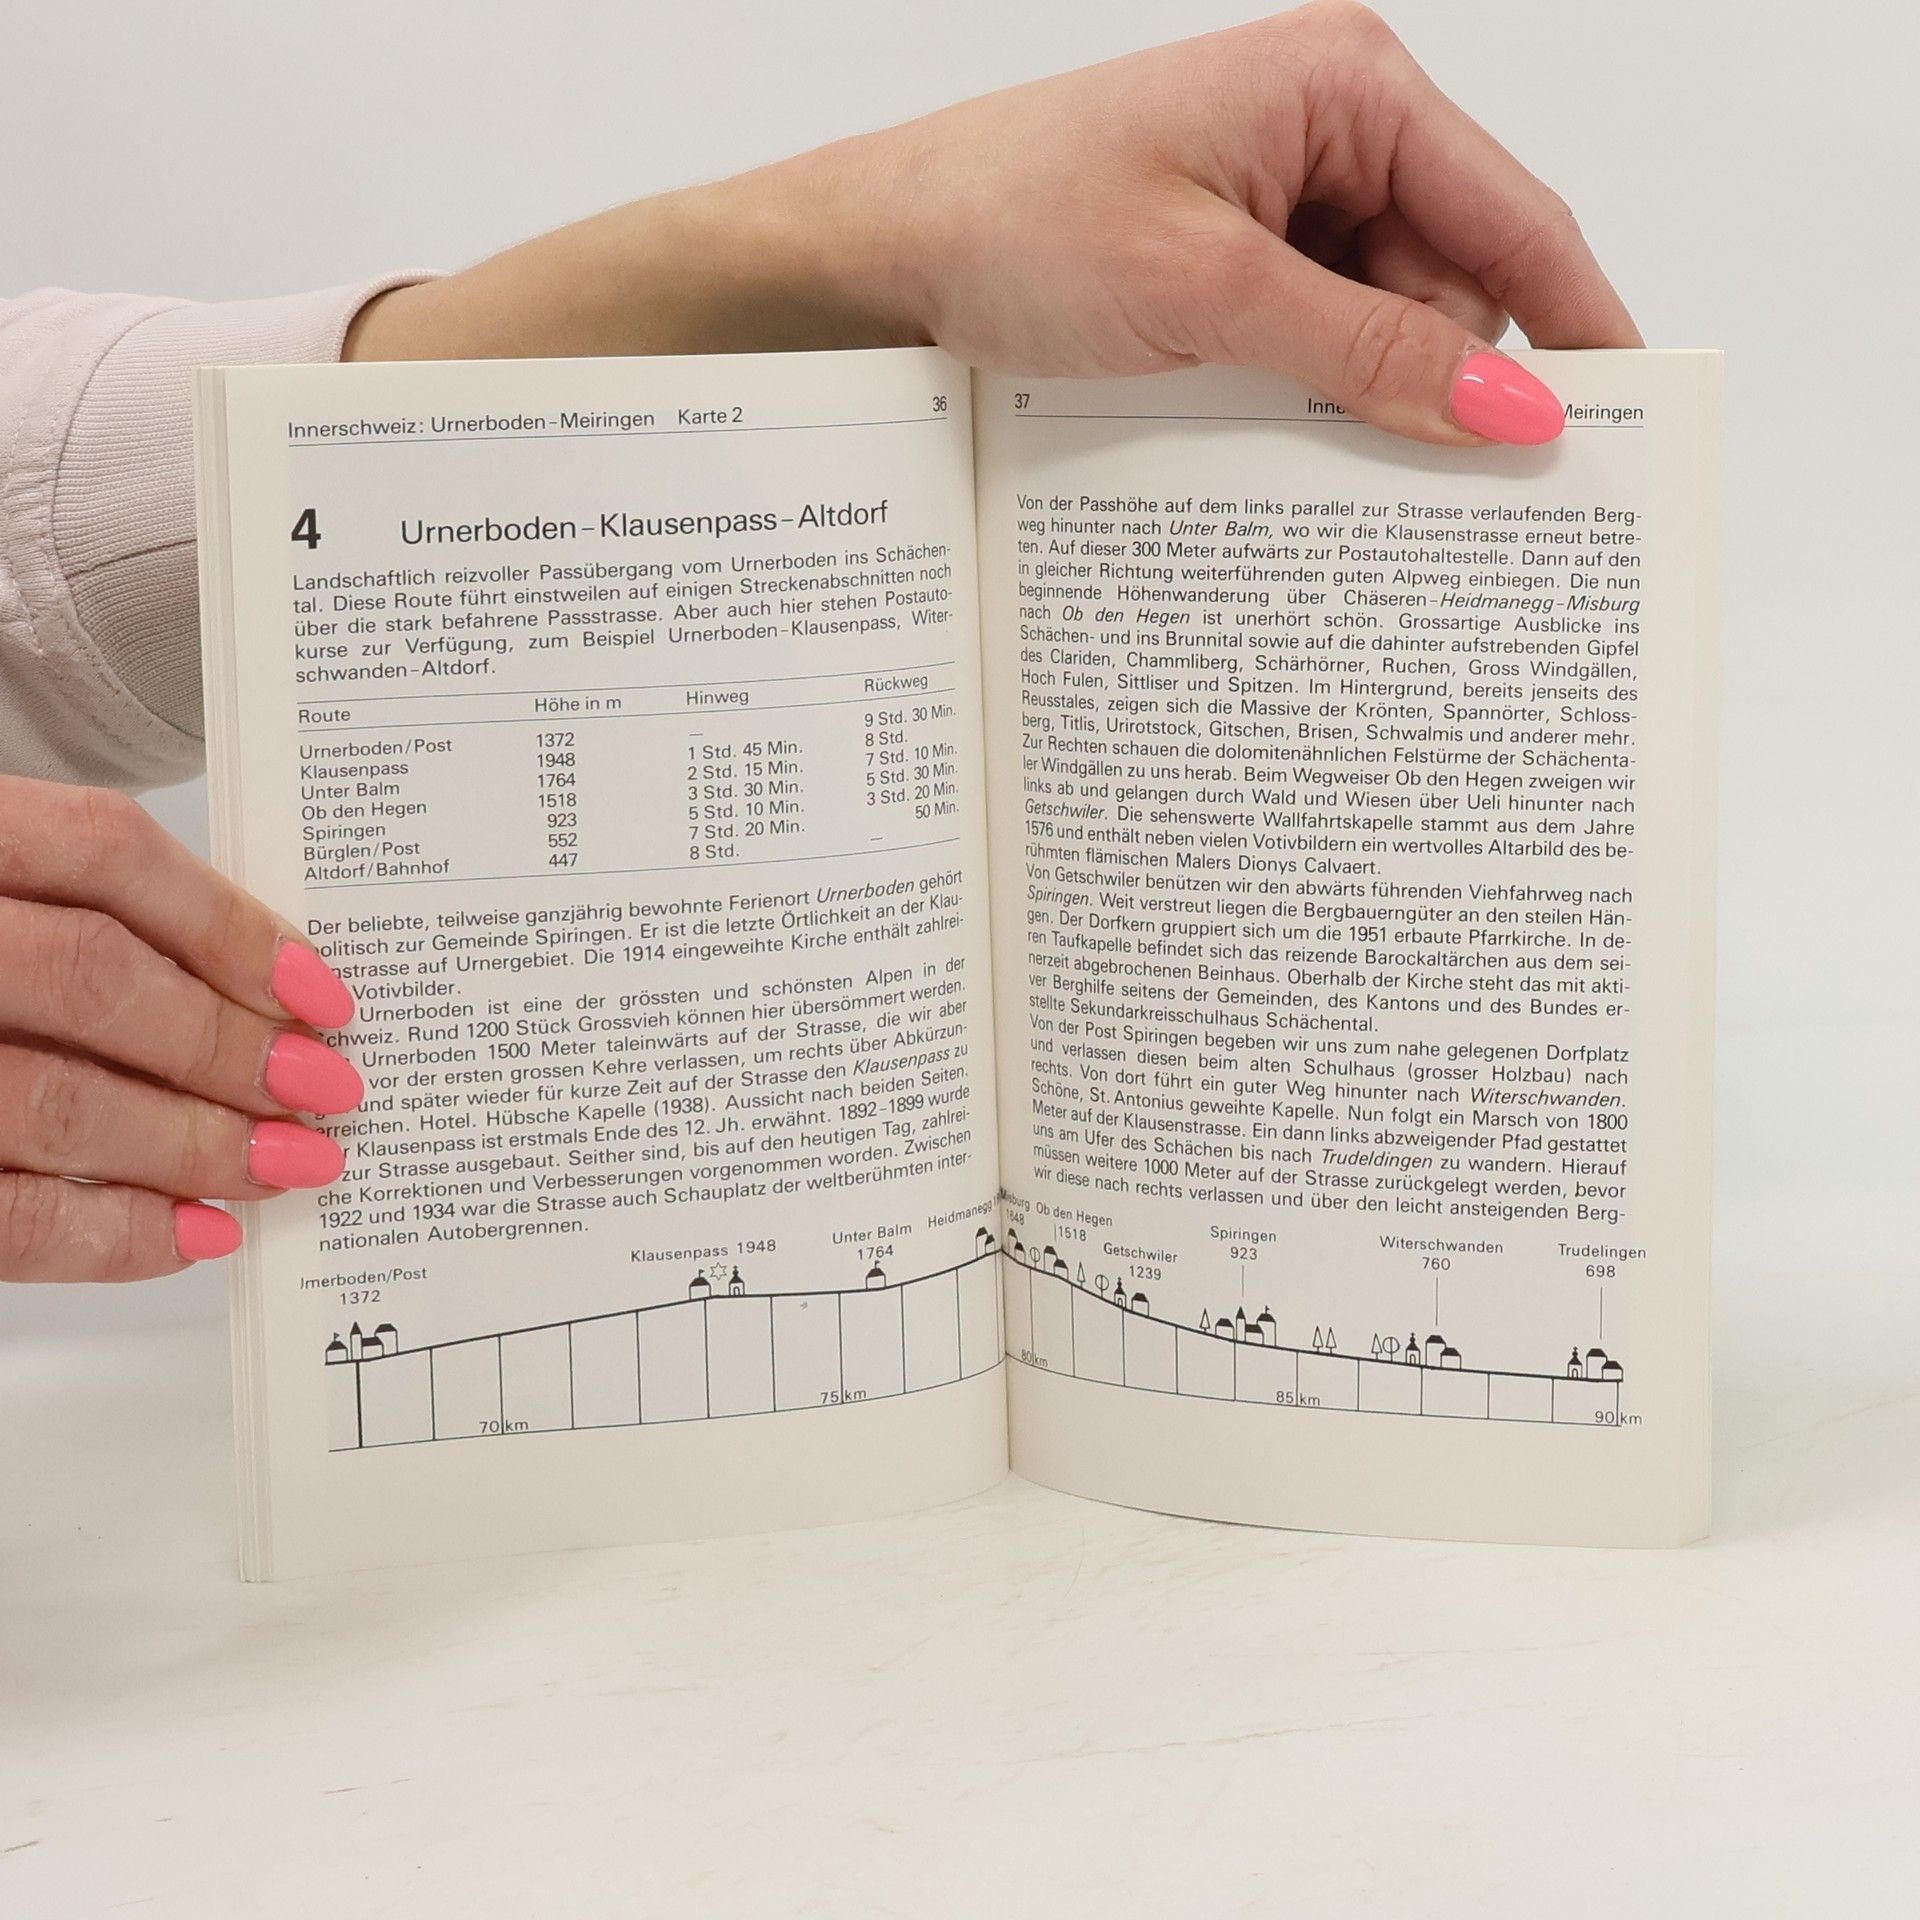 Innerschweiz: Urnerboden–Meiringen Karte 2 36
4 Urnerboden–Klausenpass–Altdorf
Landschaftlich reizvoller Passübergang vom Urnerboden ins Schächen-
tal. Diese Route führt einstweilen auf einigen Streckenabschnitten noch
über die stark befahrene Passstrasse. Aber auch hier stehen Postauto-
kurse zur Verfügung, zum Beispiel Urnerboden–Klausenpass, Witer-
schwanden–Altdorf.
Route Höhe in m Hinweg Rückweg
Urnerboden/Post 1372 — 9 Std. 30 Min.
Klausenpass 1948 1 Std. 45 Min. 8 Std.
Unter Balm 1764 2 Std. 15 Min. 7 Std. 10 Min.
Ob den Hegen 1518 3 Std. 30 Min. 5 Std. 30 Min.
Spiringen 923 5 Std. 10 Min. 3 Std. 20 Min.
Bürglen/Post 552 7 Std. 20 Min. 50 Min.
Altdorf/Bahnhof 447 8 Std. —
Der beliebte, teilweise ganzjährig bewohnte Ferienort Urnerboden gehört
politisch zur Gemeinde Spiringen. Er ist die letzte Örtlichkeit an der Klau-
nstrasse auf Urnergebiet. Die 1914 eingeweihte Kirche enthält zahlrei-
Votivbilder.
Urnerboden ist eine der grössten und schönsten Alpen in der
chweiz. Rund 1200 Stück Grossvieh können hier übersömmert werden.
Urnerboden 1500 Meter taleinwärts auf der Strasse, die wir aber
vor der ersten grossen Kehre verlassen, um rechts über Abkürzun-
und später wieder für kurze Zeit auf der Strasse den Klausenpass zu
erreichen. Hotel. Hübsche Kapelle (1938). Aussicht nach beiden Seiten.
r Klausenpass ist erstmals Ende des 12. Jh. erwähnt. 1892–1899 wurde
zur Strasse ausgebaut. Seither sind, bis auf den heutigen Tag, zahlrei-
che Korrektionen und Verbesserungen vorgenommen worden. Zwischen
1922 und 1934 war die Strasse auch Schauplatz der weltberühmten inter-
nationalen Autobergrennen.
Urnerboden/Post
1372
Klausenpass 1948
Unter Balm
1764
Heidmanegg
70 km
75 km
37 Inne Meiringen
Von der Passhöhe auf dem links parallel zur Strasse verlaufenden Berg-
weg hinunter nach Unter Balm, wo wir die Klausenstrasse erneut betre-
ten. Auf dieser 300 Meter aufwärts zur Postautohaltestelle. Dann auf den
in gleicher Richtung weiterführenden guten Alpweg einbiegen. Die nun
beginnende Höhenwanderung über Chäseren–Heidmanegg–Misburg
nach Ob den Hegen ist unerhört schön. Grossartige Ausblicke ins
Schächen- und ins Brunnital sowie auf die dahinter aufstrebenden Gipfel
des Clariden, Chammliberg, Schärhörner, Ruchen, Gross Windgällen,
Hoch Fulen, Sittliser und Spitzen. Im Hintergrund, bereits jenseits des
Reusstales, zeigen sich die Massive der Krönten, Spannörter, Schloss-
berg, Titlis, Urirotstock, Gitschen, Brisen, Schwalmis und anderer mehr.
Zur Rechten schauen die dolomitenähnlichen Felstürme der Schächenta-
ler Windgällen zu uns herab. Beim Wegweiser Ob den Hegen zweigen wir
links ab und gelangen durch Wald und Wiesen über Ueli hinunter nach
Getschwiler. Die sehenswerte Wallfahrtskapelle stammt aus dem Jahre
1576 und enthält neben vielen Votivbildern ein wertvolles Altarbild des be-
rühmten flämischen Malers Dionys Calvaert.
Von Getschwiler benützen wir den abwärts führenden Viehfahrweg nach
Spiringen. Weit verstreut liegen die Bergbauerngüter an den steilen Hän-
gen. Der Dorfkern gruppiert sich um die 1951 erbaute Pfarrkirche. In de-
ren Taufkapelle befindet sich das reizende Barockaltärchen aus dem sei-
nerzeit abgebrochenen Beinhaus. Oberhalb der Kirche steht das mit akti-
ver Berghilfe seitens der Gemeinden, des Kantons und des Bundes er-
stellte Sekundarkreisschulhaus Schächental.
Von der Post Spiringen begeben wir uns zum nahe gelegenen Dorfplatz
und verlassen diesen beim alten Schulhaus (grosser Holzbau) nach
rechts. Von dort führt ein guter Weg hinunter nach Witerschwanden.
Schöne, St. Antonius geweihte Kapelle. Nun folgt ein Marsch von 1800
Meter auf der Klausenstrasse. Ein dann links abzweigender Pfad gestattet
uns am Ufer des Schächen bis nach Trudeldingen zu wandern. Hierauf
müssen weitere 1000 Meter auf der Strasse zurückgelegt werden, bevor
wir diese nach rechts verlassen und über den leicht ansteigenden Berg-
Misburg
1648
Ob den Hegen
1518
Getschwiler
1239
Spiringen
923
Witerschwanden
760
Trudelingen
698
80 km
85 km
90 km